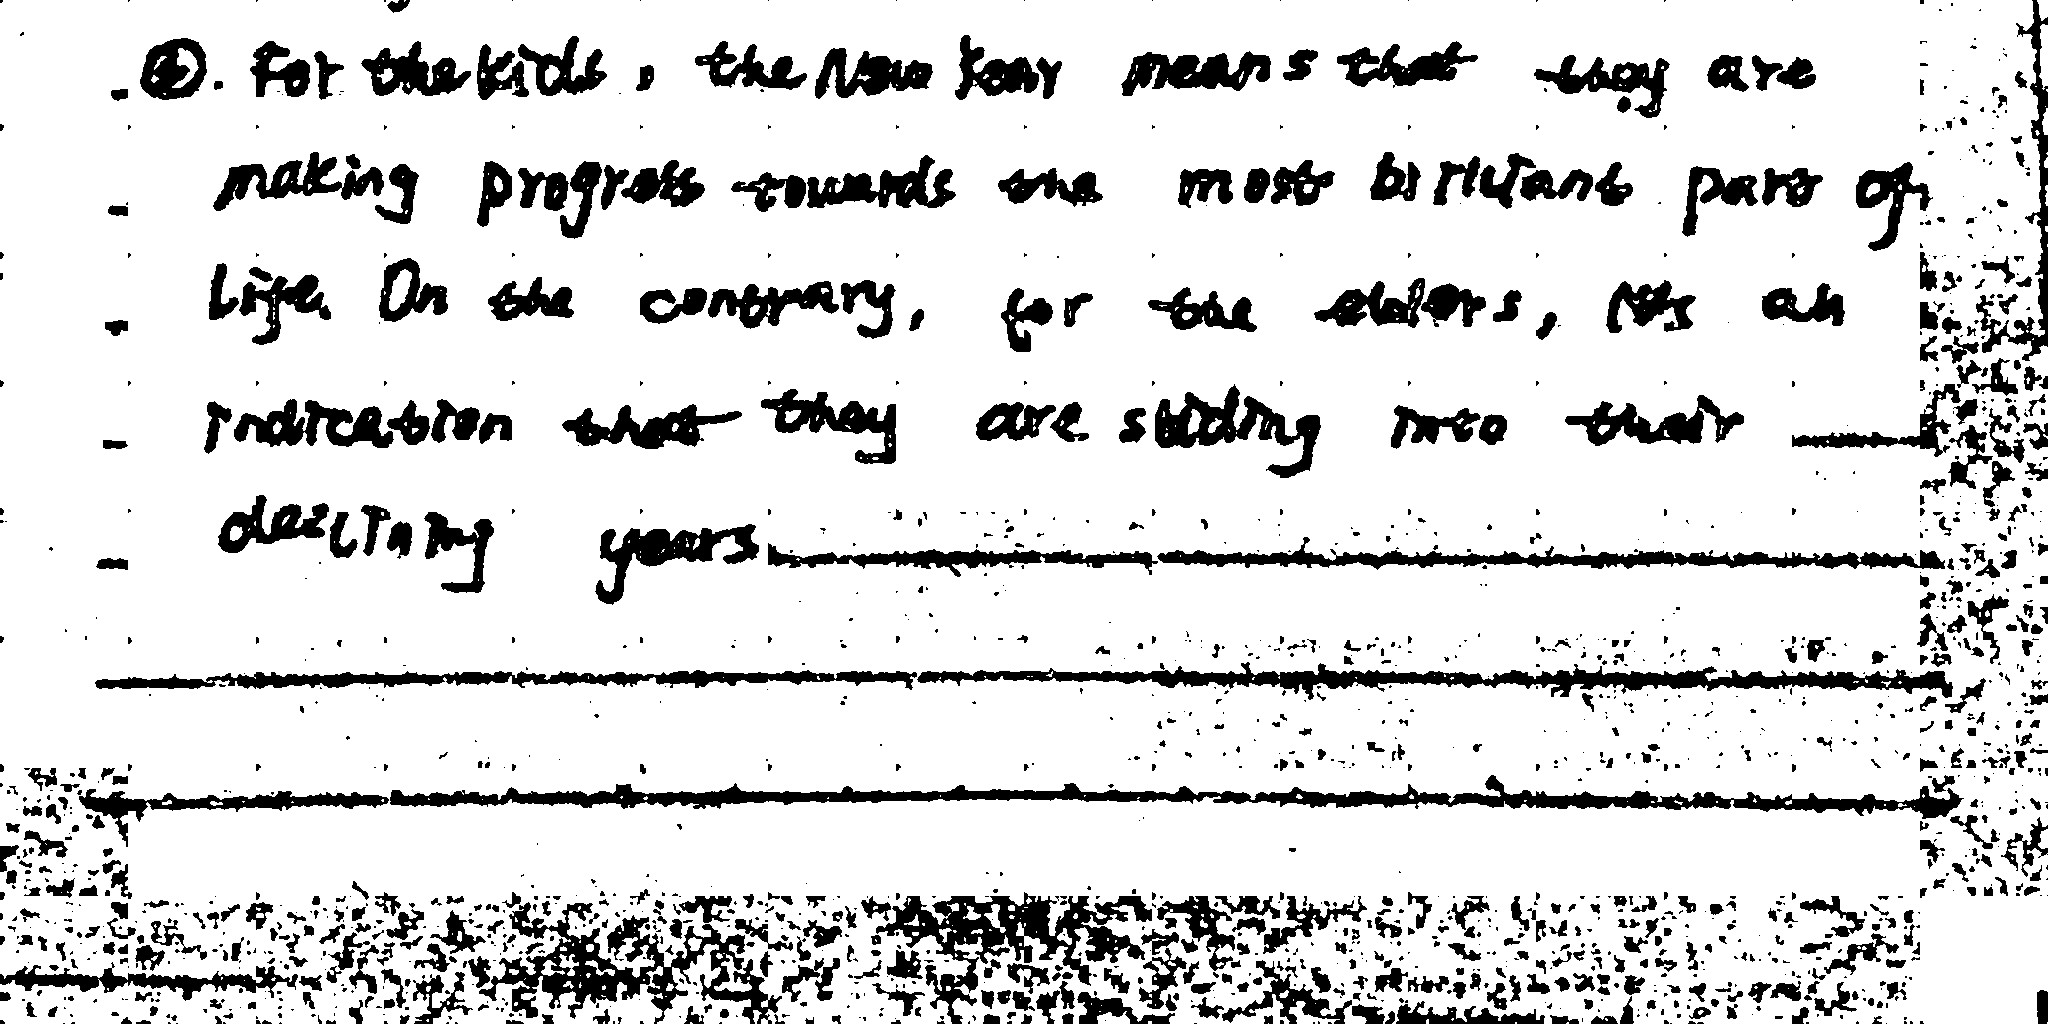 ④. For the kids, the New Year means that they are
making progress towards the most brilliant part of
life. On the contrary, for the elders, it's an
indication that they are sliding into their
declining years